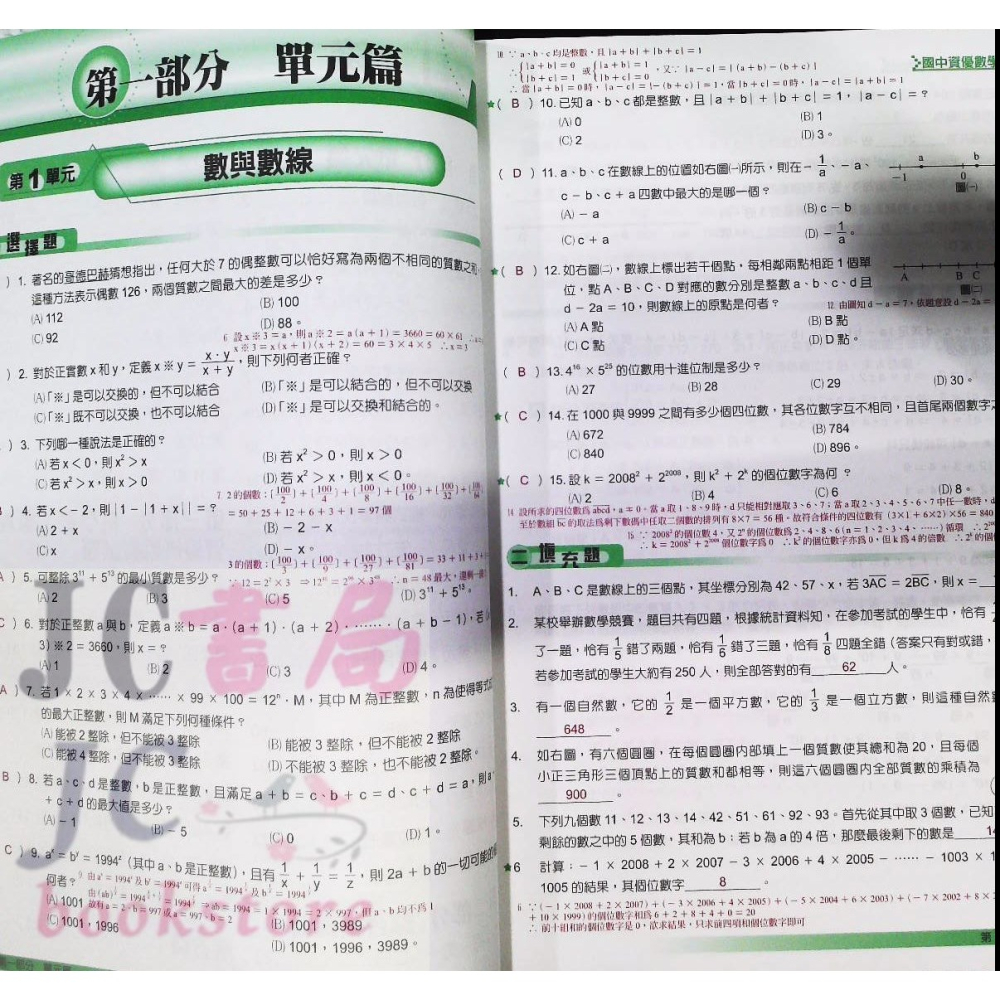 第一部分　單元篇
第1單元　數與數線
選擇題
) 1. 著名的哥德巴赫猜想指出，任何大於 7 的偶整數可以恰好寫為兩個不相同的質數之和，
這種方法表示偶數 126，兩個質數之間最大的差是多少？
(A) 112 (B) 100
(C) 92 (D) 88。
6 設 x※3 = a，則 a※2 = a(a + 1) = 3660 = 60×61
x※3 = x(x + 1)(x + 2) = 60 = 3×4×5 ∴x = 3
) 2. 對於正實數 x 和 y，定義 x※y = x·y / x + y，則下列何者正確？
(A)「※」是可以交換的，但不可以結合 (B)「※」是可以結合的，但不可以交換
(C)「※」既不可以交換，也不可以結合 (D)「※」是可以交換和結合的。
) 3. 下列哪一種說法是正確的？
(A) 若 x < 0，則 x² > x (B) 若 x² > 0，則 x > 0
(C) 若 x² > x，則 x > 0 (D) 若 x² > x，則 x < 0。
7 2 的個數：[100/2] + [100/4] + [100/8] + [100/16] + [100/32] + [100/64]
= 50 + 25 + 12 + 6 + 3 + 1 = 97 個
) 4. 若 x < − 2，則 | 1 − | 1 + x| | = ?
(A) 2 + x (B) − 2 − x
(C) x (D) − x。
3 的個數：[100/3] + [100/9] + [100/27] + [100/81] = 33 + 11 + 3 +
∵ 12 = 2² × 3 ∴ n = 48 最大，
A ) 5. 可整除 3¹¹ + 5¹³ 的最小質數是多少？
(A) 2 (B) 3 (C) 5 (D) 3¹¹ + 5¹³。
C ) 6. 對於正整數 a 與 b，定義 a※b = a · (a + 1) · (a + 2) · …… · (a + b − 1)，若
3)※2 = 3660，則 x = ?
(A) 1 (B) 2 (C) 3 (D) 4。
A ) 7. 若 1 × 2 × 3 × 4 × …… × 99 × 100 = 12ⁿ · M，其中 M 為正整數，n 為使得等式
的最大正整數，則 M 滿足下列何種條件？
(A) 能被 2 整除，但不能被 3 整除 (B) 能被 3 整除，但不能被 2 整除
(C) 能被 4 整除，但不能被 3 整除 (D) 不能被 3 整除，也不能被 2 整除。
B ) 8. 若 a、c、d 是整數，b 是正整數，且滿足 a + b = c、b + c = d、c + d = a，則 a
+ c + d 的最大值是多少？
(A) − 1 (B) − 5 (C) 0 (D) 1。
C ) 9. aˣ = bʸ = 1994ᶻ（其中 a、b 是正整數），且有 1/x + 1/y = 1/z，則 2a + b 的一切可能的
何者？
(A) 1001 (B) 1001，3989
(C) 1001，1996 (D) 1001，1996，3989。
JC書局
JC
bookstore
國中資優數學
10 ∵ a、b、c 均是整數，且 |a + b| + |b + c| = 1
∴ {|a + b| = 0 |b + c| = 1 或 {|a + b| = 1 |b + c| = 0，又∵ |a − c| = |(a + b) − (b + c)|
∴ 當 |a + b| = 0 時，|a − c| = |− (b + c)| = 1，當 |b + c| = 0 時，|a − c| = |a + b| = 1
★( B ) 10. 已知 a、b、c 都是整數，且 | a + b | + | b + c | = 1，| a − c | = ?
(A) 0 (B) 1
(C) 2 (D) 3。
( D ) 11. a、b、c 在數線上的位置如右圖㈠所示，則在 − 1/a、− a、
c − b、c + a 四數中最大的是哪一個？
(A) − a (B) c − b
(C) c + a (D) − 1/a。
a b
−1 0
圖㈠
★( B ) 12. 如右圖㈡，數線上標出若干個點，每相鄰兩點相距 1 個單
位，點 A、B、C、D 對應的數分別是整數 a、b、c、d 且
d − 2a = 10，則數線上的原點是何者？
(A) A 點 (B) B 點
(C) C 點 (D) D 點。
A B C
圖㈡
12. 由圖知 d − a = 7，依題意設 d − 2a =
( B ) 13. 4¹⁶ × 5²⁵ 的位數用十進位制是多少？
(A) 27 (B) 28 (C) 29 (D) 30。
★( C ) 14. 在 1000 與 9999 之間有多少個四位數，其各位數字互不相同，且首尾兩個數字之
(A) 672 (B) 784
(C) 840 (D) 896。
★( C ) 15. 設 k = 2008² + 2²⁰⁰⁸，則 k² + 2ᵏ 的個位數字為何 ？
(A) 2 (B) 4 (C) 6 (D) 8。
14 設所求的四位數為 abcd，a ≠ 0，當 a 取 1、8、9 時，d 只能相對應取 3、6、7；當 a 取 2、3、4、5、6、7 中任一數時，d
至於數組 bc 的取法為剩下數碼中任取二個數的排列有 8×7 = 56 種，故符合條件的四位數有 (3×1 + 6×2)×56 = 840
15 ∵ 2008² 的個位數 4，又 2ⁿ 的個位數為 2、4、8、6 (n = 1、2、3、4、……) 循環
∴ k = 2008² + 2²⁰⁰⁸ 個位數字為 0 ∴ k² 的個位數字亦為 0，但 k 為 4 的倍數
二 填充題
1. A、B、C 是數線上的三個點，其坐標分別為 42、57、x，若 3AC = 2BC，則 x =
2. 某校舉辦數學競賽，題目共有四題，根據統計資料知，在參加考試的學生中，恰有
了一題，恰有 1/5 錯了兩題，恰有 1/6 錯了三題，恰有 1/8 四題全錯（答案只有對或錯，
若參加考試的學生大約有 250 人，則全部答對的有 62 人。
3. 有一個自然數，它的 1/2 是一個平方數，它的 1/3 是一個立方數，則這種自然
648 。
4. 如右圖，有六個圓圈，在每個圓圈內部填上一個質數使其總和為 20，且每個
小正三角形三個頂點上的質數和都相等，則這六個圓圈內全部質數的乘積為
900 。
5. 下列九個數 11、12、13、14、42、51、61、92、93。首先從其中取 3 個數，已知
剩餘的數之中的 5 個數，其和為 b；若 b 為 a 的 4 倍，那麼最後剩下的數是
★6 計算：− 1 × 2008 + 2 × 2007 − 3 × 2006 + 4 × 2005 − …… − 1003 ×
1005 的結果，其個位數字 8 。
6 ∵ (− 1×2008 + 2×2007) + (− 3×2006 + 4×2005) + (− 5×2004 + 6×2003) + (− 7×2002 + 8×
+ 10×1999) 的個位數字相為 6 + 2 + 8 + 4 + 0 = 20
∴ 前十組和的個位數字是 0，欲求結果，只求前四項和個位數字即可
第